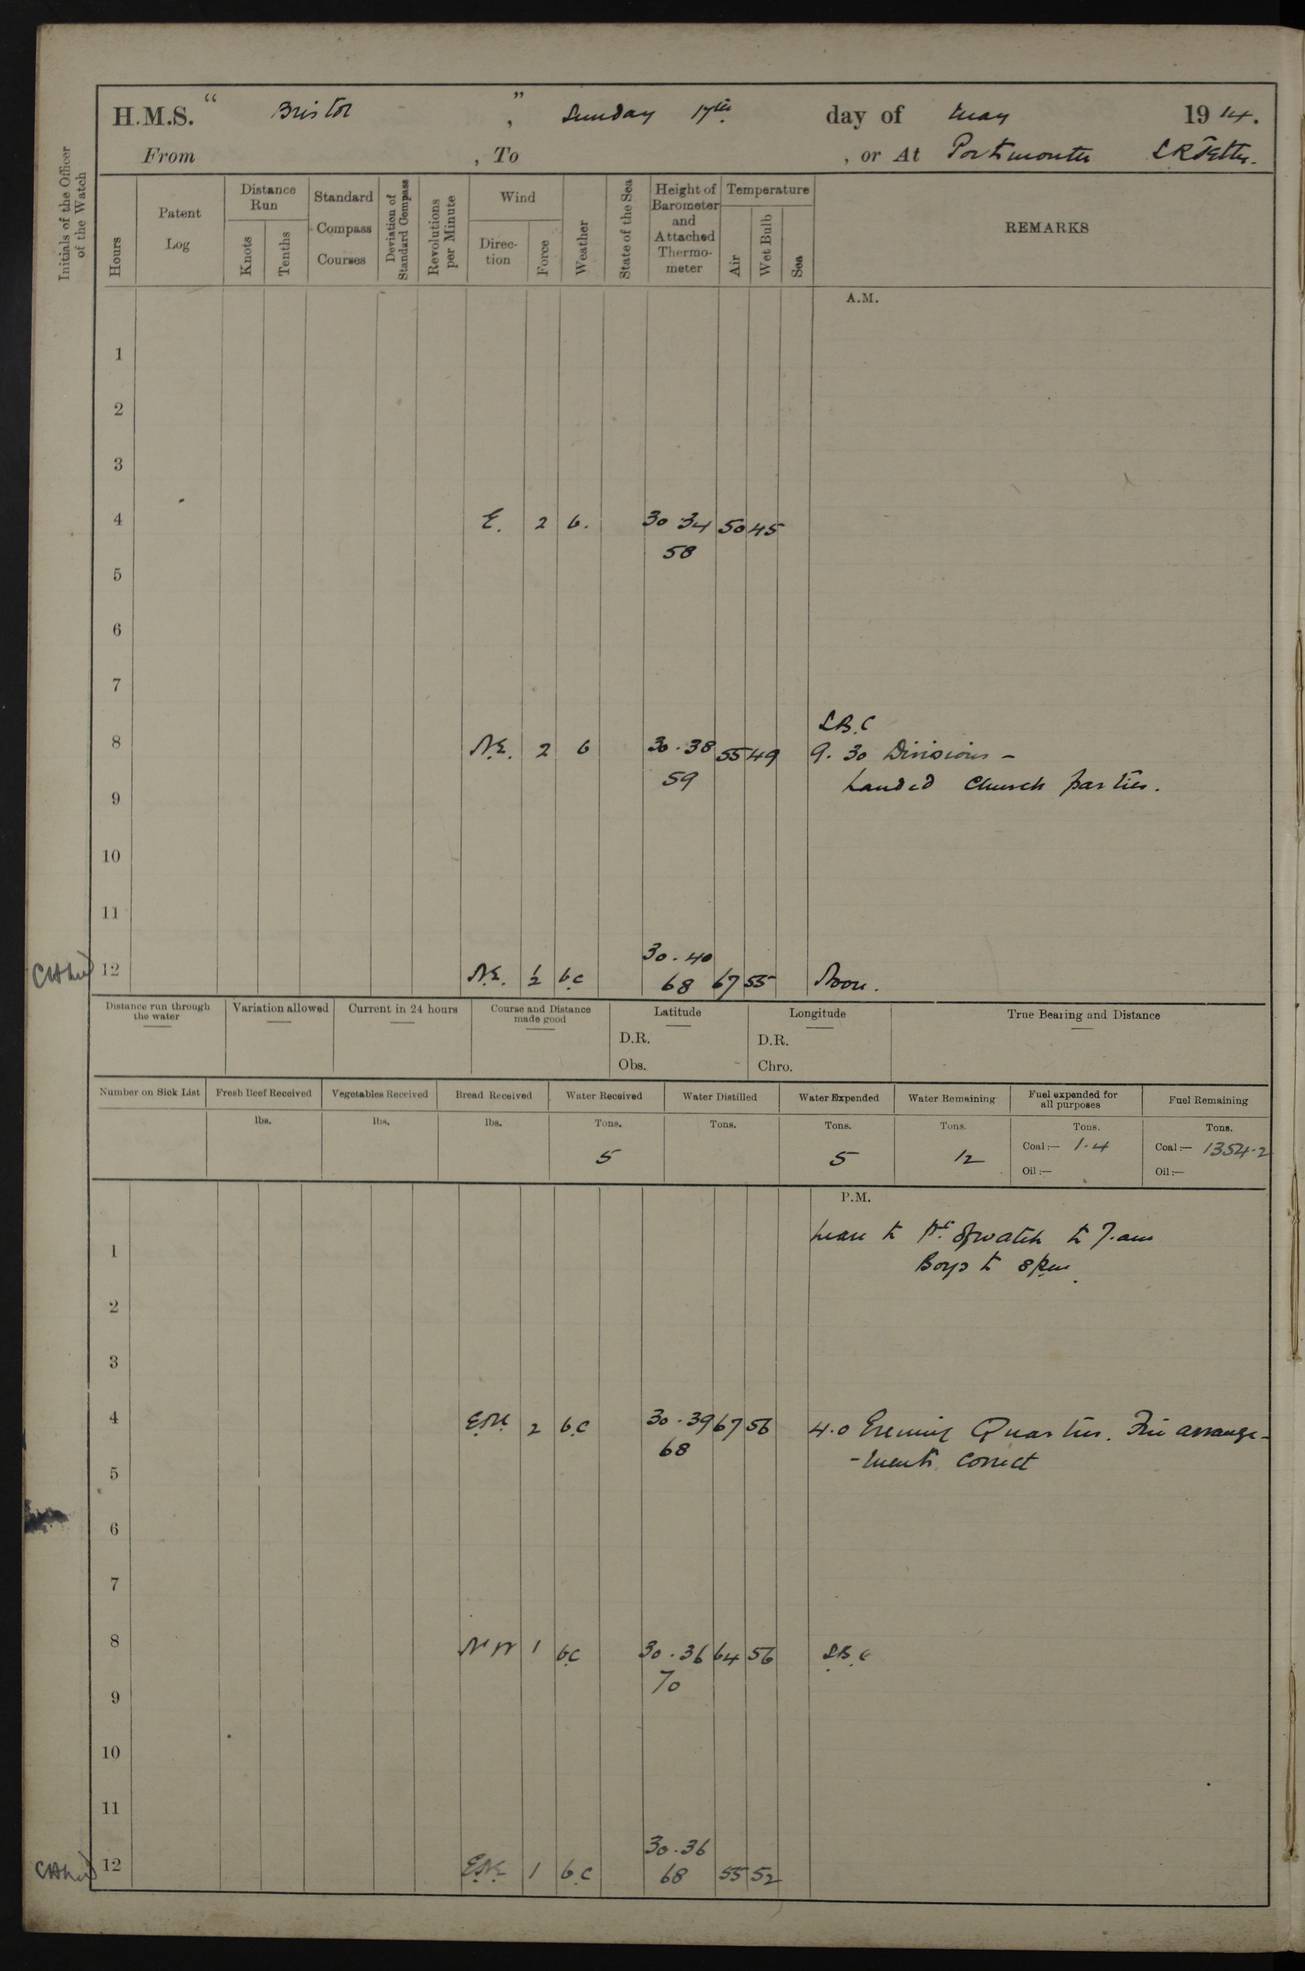 H.M.S. " Bristol ", Sunday 17th day of May 1914.
From , To , or At Portsmouth
Initials of the Officer of the Watch
Hours
Patent Log
Distance Run
Knots
Tenths
Standard Compass Courses
Deviation of Standard Compass
Revolutions per Minute
Wind
Direc-tion
Force
Weather
State of the Sea
Height of Barometer and Attached Thermo-meter
Temperature
Air
Wet Bulb
Sea
REMARKS
A.M.
1
2
3
4 E. 2 b. 30.34 50 45
58
5
6
7
S.B.C
8 N.E. 2 b 30.38 55 49 9.30 Divisions -
59 Landed Church parties.
9
10
11
30.40
12 N.E. ½ b.c 68 67 55 Noon.
Distance run through the water
Variation allowed
Current in 24 hours
Course and Distance made good
Latitude
D.R.
Obs.
Longitude
D.R.
Chro.
True Bearing and Distance
Number on Sick List
Fresh Beef Received
lbs.
Vegetables Received
lbs.
Bread Received
lbs.
Water Received
Tons.
5
Water Distilled
Tons.
Water Expended
Tons.
5
Water Remaining
Tons.
12
Fuel expended for all purposes
Tons.
Coal:— 1.4
Oil:—
Fuel Remaining
Tons.
Coal:— 1354.2
Oil:—
P.M.
Leave to of watch to 7.am
1
Boys to 8 p.m.
2
3
4 2 b.c 30.39 67 56 4.0 Evening Quarters. Fire arrange-
68 -ments correct
5
6
7
8 NW 1 b.c 30.36 64 56 S.B.C
70
9
10
11
30.36
12 E.N.E. 1 b.c 68 55 52